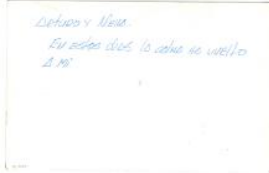 Arturo y Nena.
En estos dias la calma ha vuelto
A mi